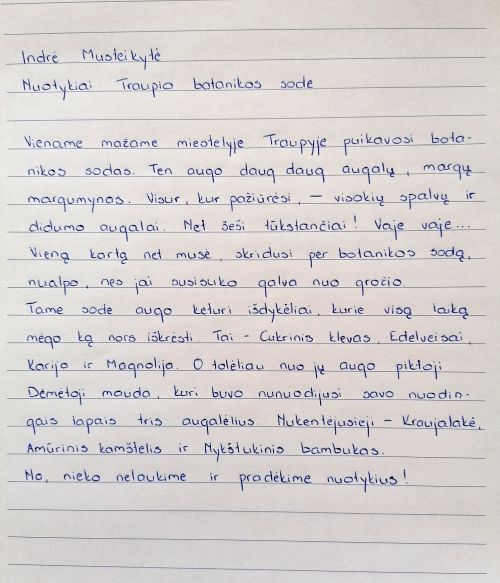 Indrė Musteikytė
Nuotykiai Traupio botanikos sode
Viename mažame miestelyje Traupyje puikavosi bota-
nikos sodas. Ten augo daug daug augalų, margų
margumynos. Visur, kur pažiūrėsi, – visokių spalvų ir
didumo augalai. Net šeši tūkstančiai! Vaje vaje...
Vieną kartą net musė, skridusi per botanikos sodą,
nualpo, nes jai susisuko galva nuo grožio.
Tame sode augo keturi išdykėliai, kurie visą laiką
mėgo ką nors iškrėsti. Tai – Cukrinis klevas, Edelveisai,
Karija ir Magnolija. O tolėliau nuo jų augo piktoji
Dėmėtoji mauda, kuri buvo nunuodijusi savo nuodin-
gais lapais tris augalėlius. Nukentėjusieji – Kraujalakė,
Amūrinis kamštelis ir Nykštukinis bambukas.
Na, nieko nelaukime ir pradėkime nuotykius!